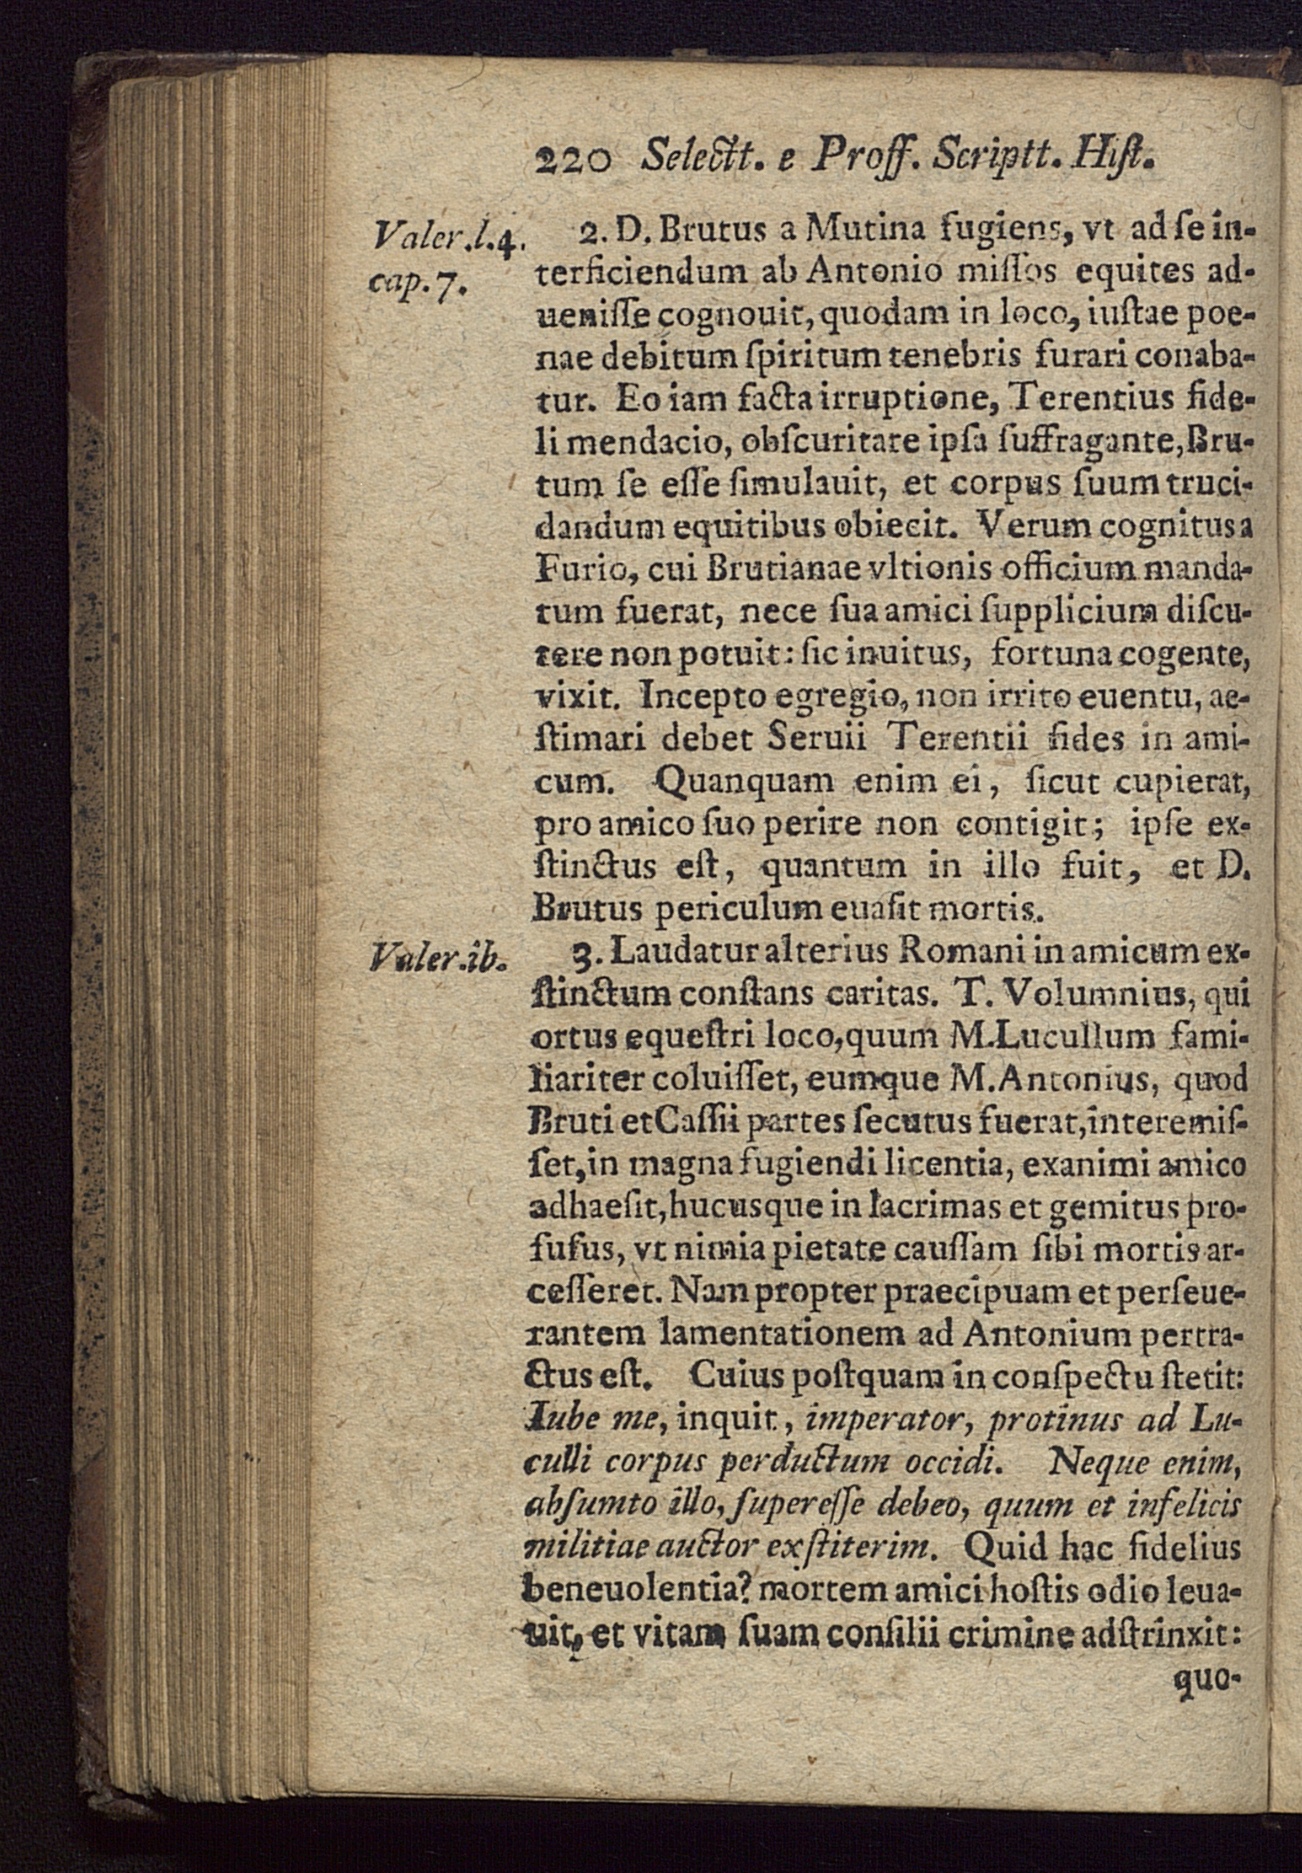 220 Selectt. e Proff. Scriptt. Hiſt.
Valer.l.4.
cap.7.
2. D. Brutus a Mutina fugiens, vt ad ſe in-
terficiendum ab Antonio miſſos equites ad-
ueniſſe cognouit, quodam in loco, iuſtae poe-
nae debitum ſpiritum tenebris furari conaba-
tur. Eo iam facta irruptione, Terentius fide-
li mendacio, obſcuritate ipſa ſuffragante, Bru-
tum ſe eſſe ſimulauit, et corpus ſuum truci-
dandum equitibus obiecit. Verum cognitus a
Furio, cui Brutianae vltionis officium manda-
tum fuerat, nece ſua amici ſupplicium diſcu-
tere non potuit: ſic inuitus, fortuna cogente,
vixit. Incepto egregio, non irrito euentu, ae-
ſtimari debet Seruii Terentii fides in ami-
cum. Quanquam enim ei, ſicut cupierat,
pro amico ſuo perire non contigit; ipſe ex-
ſtinctus eſt, quantum in illo fuit, et D.
Brutus periculum euaſit mortis.
Valer.ib.
3. Laudatur alterius Romani in amicum ex-
ſtinctum conſtans caritas. T. Volumnius, qui
ortus equeſtri loco, quum M. Lucullum fami-
liariter coluiſſet, eumque M. Antonius, quod
Bruti et Caſſii partes ſecutus fuerat, interemiſ-
ſet, in magna fugiendi licentia, exanimi amico
adhaeſit, hucusque in lacrimas et gemitus pro-
fuſus, vt nimia pietate cauſſam ſibi mortis ar-
ceſſeret. Nam propter praecipuam et perſeue-
rantem lamentationem ad Antonium pertra-
ctus eſt. Cuius poſtquam in conſpectu ſtetit:
Iube me, inquit, imperator, protinus ad Lu-
culli corpus perductum occidi. Neque enim,
abſumto illo, ſupereſſe debeo, quum et infelicis
militiae auctor exſtiterim. Quid hac fidelius
beneuolentia? mortem amici hoſtis odio leua-
uit, et vitam ſuam conſilii crimine adſtrinxit:
quo-